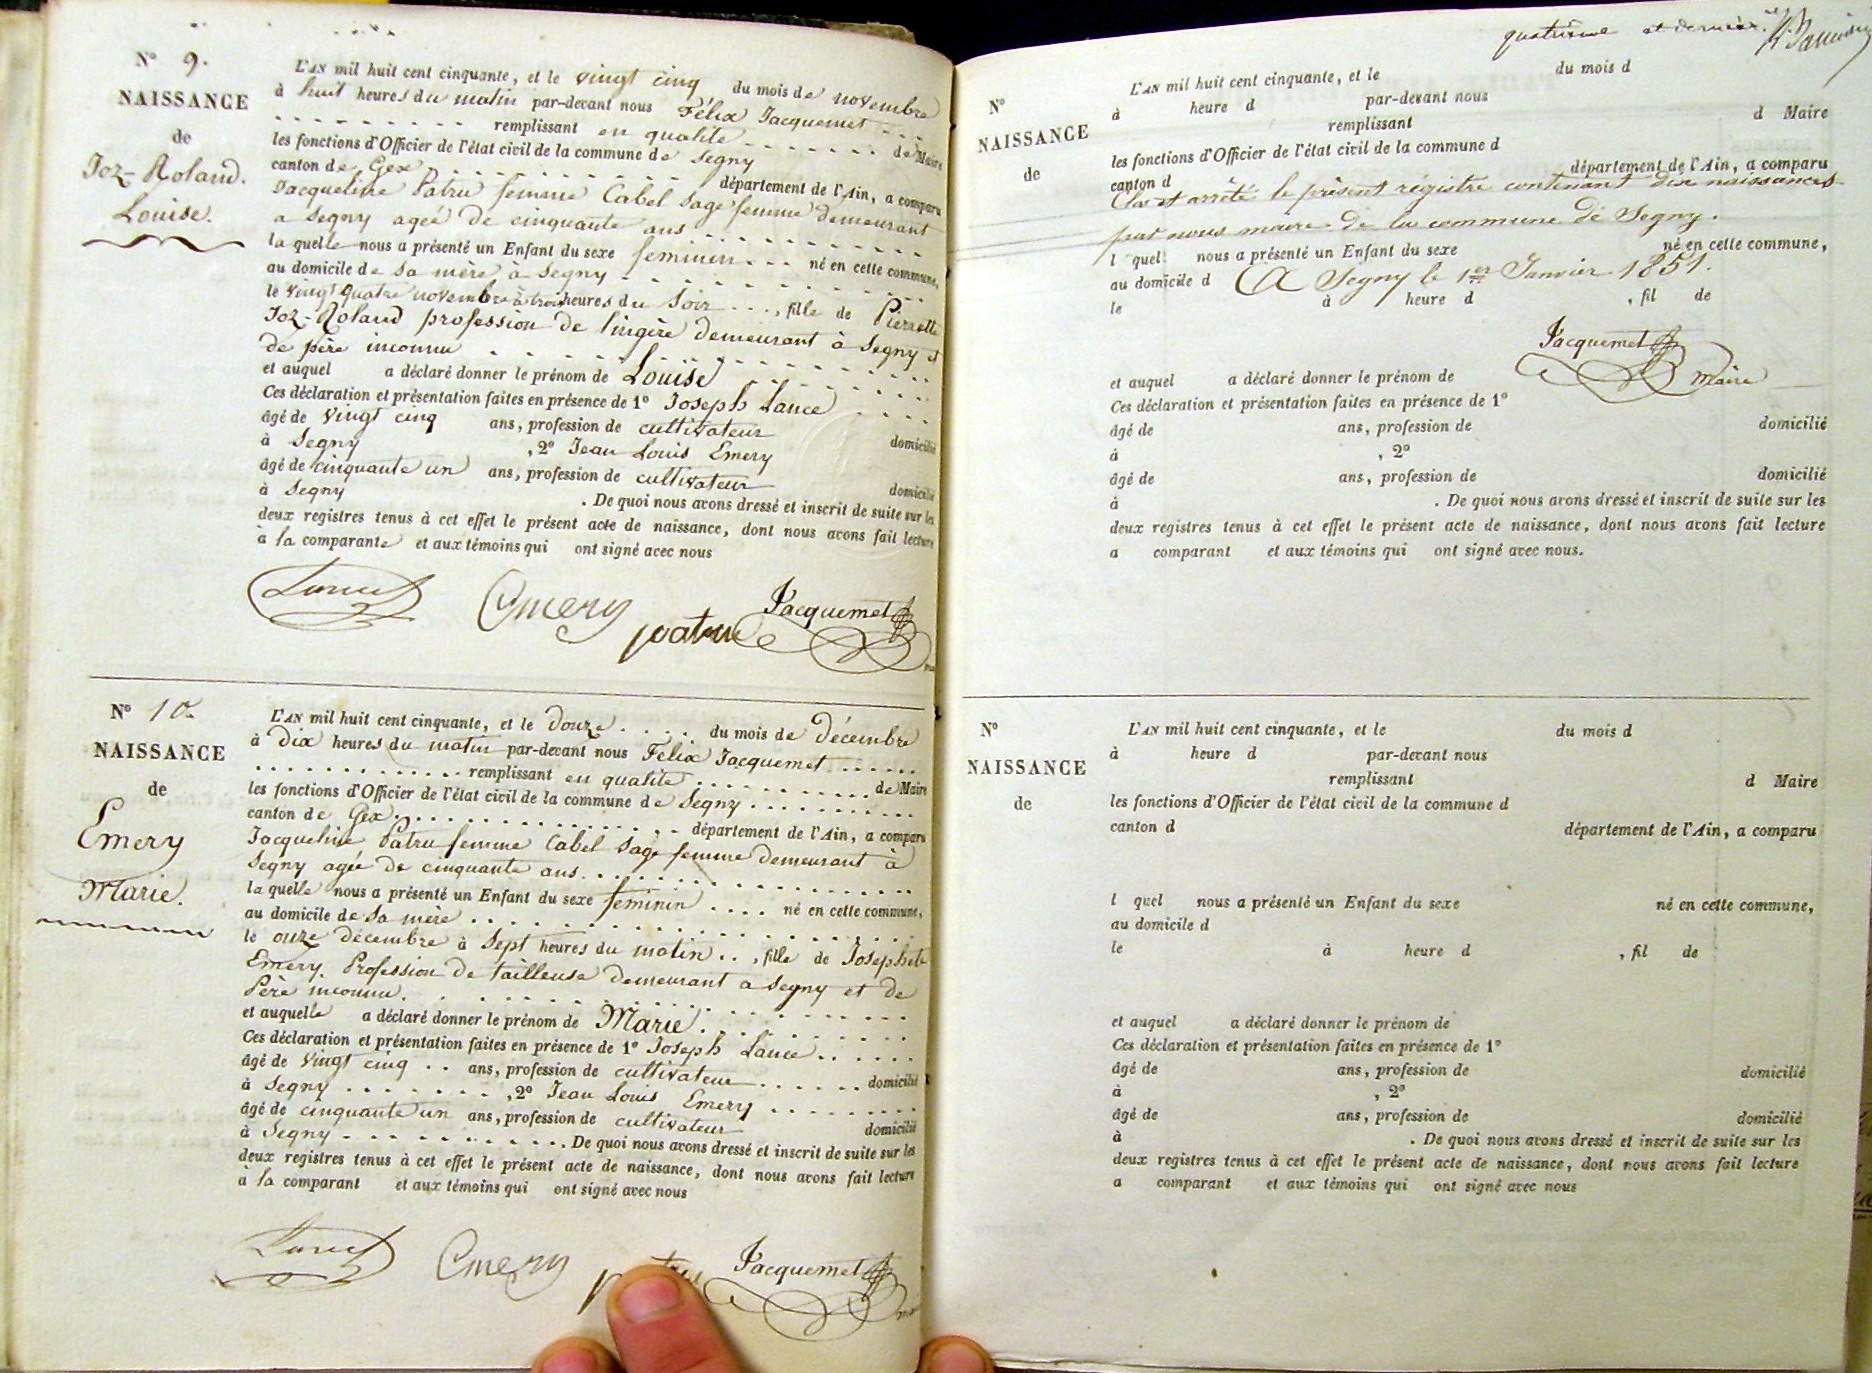 N° 9.
NAISSANCE
de
Joz-Roland.
Louise.
L'AN mil huit cent cinquante, et le vingt cinq du mois de novembre
à huit heures du matin par-devant nous Félix Jacquemet
remplissant en qualité de Maire
les fonctions d'Officier de l'état civil de la commune de Segny
canton de Gex département de l'Ain, a comparu
Jacqueline Patru femme Cabel sage femme demeurant
a Segny agée de cinquante ans
la quelle nous a présenté un Enfant du sexe feminin né en cette commune,
au domicile de sa mère à Segny
le vingt quatre novembre à trois heures du soir, fille de Pierrette
Joz-Roland profession de lingère demeurant à Segny et
de père inconnu
et auquel a déclaré donner le prénom de Louise
Ces déclaration et présentation faites en présence de 1° Joseph Lance
âgé de vingt cinq ans, profession de cultivateur domicilié
à Segny , 2° Jean Louis Emery
âgé de cinquante un ans, profession de cultivateur domicilié
à Segny . De quoi nous avons dressé et inscrit de suite sur les
deux registres tenus à cet effet le présent acte de naissance, dont nous avons fait lecture
à la comparante et aux témoins qui ont signé avec nous
Lance Emery patru Jacquemet
N° 10.
NAISSANCE
de
Emery
Marie.
L'AN mil huit cent cinquante, et le douze du mois de décembre
à dix heures du matin par-devant nous Félix Jacquemet
remplissant en qualité de Maire
les fonctions d'Officier de l'état civil de la commune de Segny
canton de Gex département de l'Ain, a comparu
Jacqueline Patru femme Cabel sage femme demeurant à
Segny agée de cinquante ans
la quelle nous a présenté un Enfant du sexe feminin né en cette commune,
au domicile de sa mère
le onze décembre à sept heures du matin, fille de Josephete
Emery. Profession de tailleuse demeurant a Segny et de
Père inconnu.
et auquelle a déclaré donner le prénom de Marie.
Ces déclaration et présentation faites en présence de 1° Joseph Lance
âgé de vingt cinq ans, profession de cultivateur domicilié
à Segny , 2° Jean Louis Emery
âgé de cinquante un ans, profession de cultivateur domicilié
à Segny . De quoi nous avons dressé et inscrit de suite sur les
deux registres tenus à cet effet le présent acte de naissance, dont nous avons fait lecture
à la comparant et aux témoins qui ont signé avec nous
Lance Emery Jacquemet
quatrième et dernier.
N°
NAISSANCE
de
L'AN mil huit cent cinquante, et le du mois d
à heure d par-devant nous
remplissant d Maire
les fonctions d'Officier de l'état civil de la commune d
canton d département de l'Ain, a comparu
Clos et arrêté le présent régistre contenant dix naissances
par nous maire de la commune de Segny.
l quel nous a présenté un Enfant du sexe né en cette commune,
au domicile d
A Segny le 1er Janvier 1851.
le à heure d , fil de
Jacquemet
maire
et auquel a déclaré donner le prénom de
Ces déclaration et présentation faites en présence de 1°
âgé de ans, profession de domicilié
à , 2°
âgé de ans, profession de domicilié
à . De quoi nous avons dressé et inscrit de suite sur les
deux registres tenus à cet effet le présent acte de naissance, dont nous avons fait lecture
a comparant et aux témoins qui ont signé avec nous.
N°
NAISSANCE
de
L'AN mil huit cent cinquante, et le du mois d
à heure d par-devant nous
remplissant d Maire
les fonctions d'Officier de l'état civil de la commune d
canton d département de l'Ain, a comparu
l quel nous a présenté un Enfant du sexe né en cette commune,
au domicile d
le à heure d , fil de
et auquel a déclaré donner le prénom de
Ces déclaration et présentation faites en présence de 1°
âgé de ans, profession de domicilié
à , 2°
âgé de ans, profession de domicilié
à . De quoi nous avons dressé et inscrit de suite sur les
deux registres tenus à cet effet le présent acte de naissance, dont nous avons fait lecture
a comparant et aux témoins qui ont signé avec nous